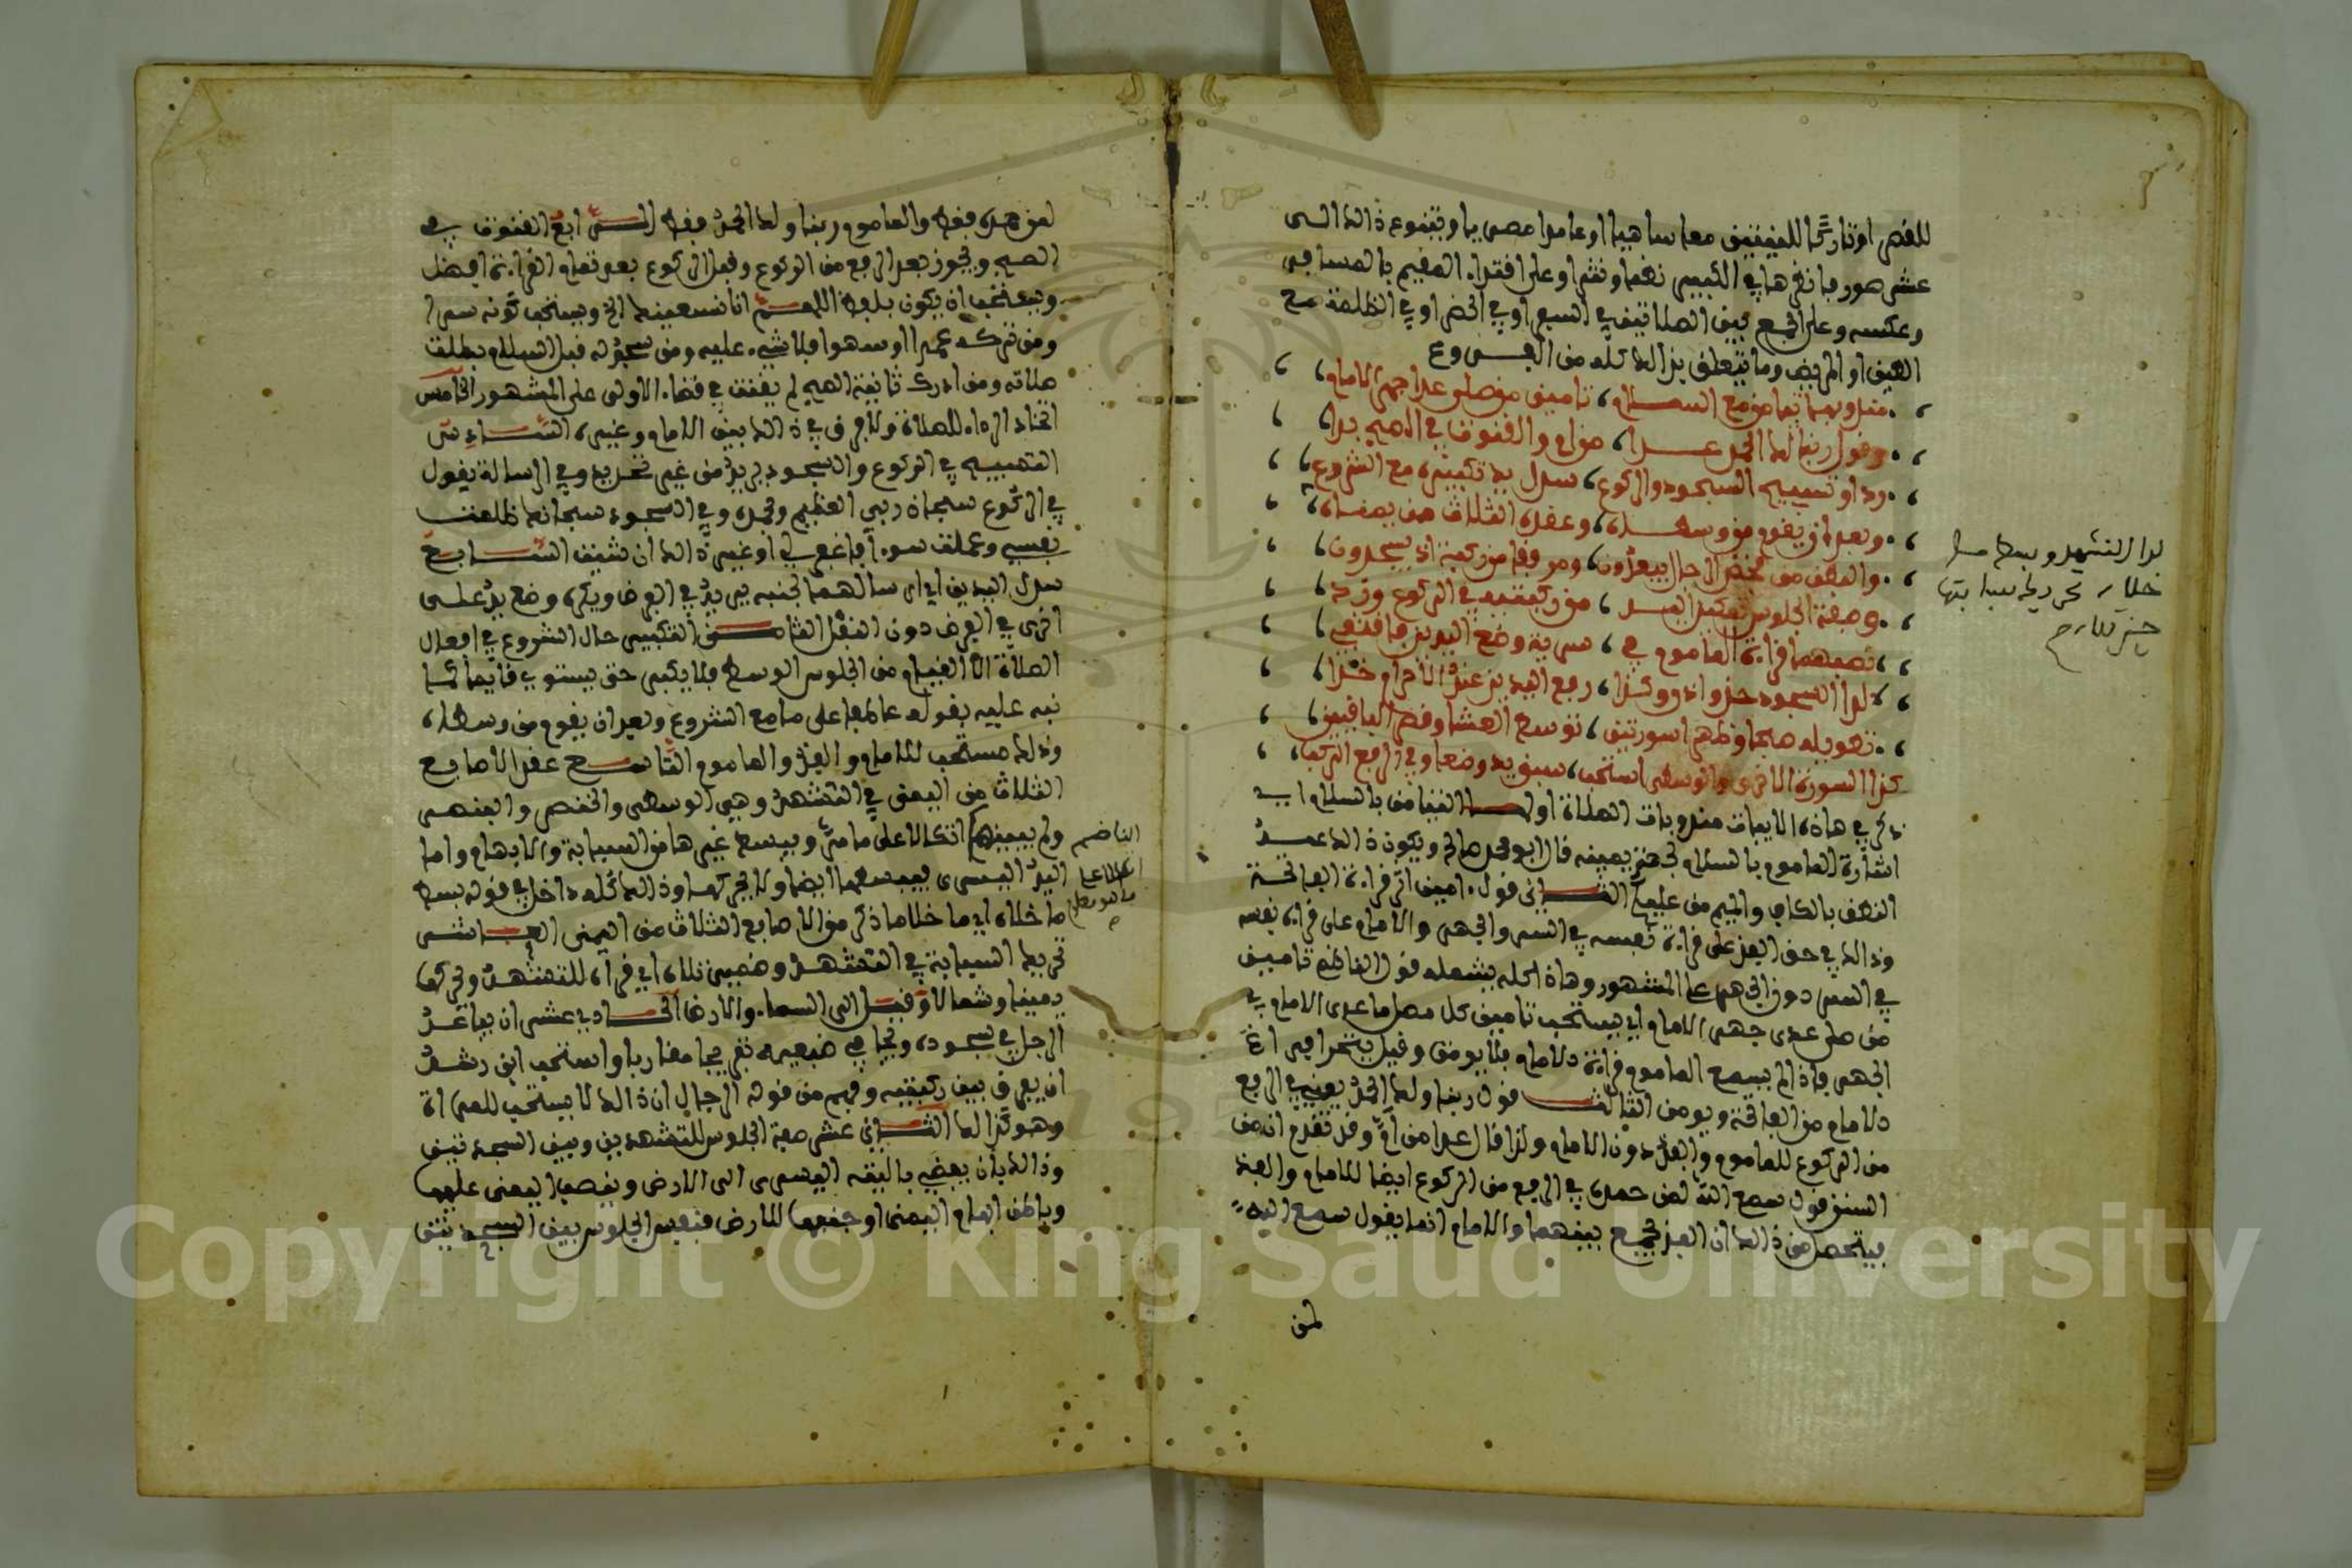 للقصر او تاركا للفيتين معا ساهيا او عامدا مصيبا ويتنوع ذالك الى
عشر صور فانظرها في الكبير نظما ونثرا وعلى اقتداء المقيم بالمسافر
وعكسه وعلى الجمع بين الصلاتين في السفر او في الحضر او في الظلمة مع
الطين او المريض وما يتعلق بذالك كله من الفروع
مندوبها تيامن مع السلام، تامين من صلى عدا جهر الامام،
وقول ربنا لك الحمد عدا، من ام والقنوت في الصبح بدا،
ردا وتسبيح السجود والركوع، سدل يد تكبيره مع الشروع،
وبعد ان يقوم من وسطاه، وعقده الثلاث من يمناه،
والبطن من فخذ الرجال يبعدون، ومرفقا من ركبة اذ يسجدون،
وصفة الجلوس تمكين اليد، من ركبتيه في الركوع وزد،
نصبهما قراءة الماموم في، سرية وضع اليدين فاقتفي،
لدا السجود حذو اذن وكذا، رفع اليدين عند الاحرام خذا،
تطويله صبحا وظهرا سورتين، توسط العشا وقصر الباقيين،
كذا السورة الاخرى والوسطى استحب، سبق يد وضعا وفي الرفع الركب،
ذكر في هاذه الابيات مندوبات الصلاة اولها التيامن بالسلام اي
اشارة الماموم بالسلام لجهة يمينه قال ابو محمد صالح ويكون ذالك عند
النطق بالكاف والميم من عليكم الثاني قول ءامين اثر قراءة الفاتحة
وذالك في حق الفذ على قراءة نفسه في السر والجهر والامام على قراءة نفسه
في السر دون الجهر على المشهور وهاذا كله يشمله قول الناظم تامين
من صلى عدى جهر الامام اي يستحب تامين كل مصل ما عدى الامام في
الجهر فاذا لم يسمع الماموم قراءة الامام فلا يومن وقيل يتحرا فراغ
الامام من الفاتحة ويومن الثالث قول ربنا ولك الحمد بعد الرفع
من الركوع للماموم والفذ دون الامام ولذا قال عدا من ام وقد تقدم انه من
السنن قول سمع الله لمن حمده في الرفع من الركوع ايضا للامام والفذ
فيتحصل من ذالك ان الفذ يجمع بينهما والامام انما يقول سمع الله
لمن
لدا التشهد وبسط ما
خلاه تحريك سبابتها
حين تلاه
لمن حمده فقط والماموم ربنا ولك الحمد فقط الرابع القنوت في
الصبح ويجوز بعد الرفع من الركوع وقبل الركوع بعد تمام القراءة افضل
ويستحب ان يكون بلفظ اللهم انا نستعينك الخ ويستحب كونه سرا
ومن تركه عمدا او سهوا فلا شيء عليه ومن سجد له قبل السلام بطلت
صلاته ومن ادرك ثانية الصبح لم يقنت في قضاء الاولى على المشهور الخامس
اتخاذ الرداء للصلاة ولا فرق في ذالك بين الامام وغيره السادس
التسبيح في الركوع والسجود من غير تحديد وفي الرسالة يقول
في الركوع سبحان ربي العظيم وبحمده وفي السجود سبحانك ظلمت
نفسي وعملت سوءا فاغفر لي او غير ذالك ان شئت السابع
سدل اليدين اي ارسالهما لجنبه في الفرض ويكره وضع يد على
اخرى في الفرض دون النفل الثامن التكبير حال الشروع في افعال
الصلاة الا القيام من الجلوس الوسط فلا يكبر حتى يستوي قائما كما
نبه عليه بقوله عاطفا على ما مع الشروع وبعد ان يقوم من وسطاه،
وذلك مستحب للامام والفذ والماموم التاسع عقد الاصابع
الثلاث من اليمنى في التشهد وهي الوسطى والخنصر والبنصر
ولم يبينهم اتكالا على ما مر ويبسط غيرها من السبابة والابهام واما
اليد اليسرى فيبسطها ايضا ولا يحركها وذالك كله داخل في قوله بسط
ما خلاه اي ما خلا ما ذكر من الاصابع الثلاث من اليمنى العاشر
تحريك السبابة في التشهد وضمير تلاه اي قراه للتشهد وتحركها
يمينا وشمالا وقيل الى السماء والارض الحادي عشر ان يباعد
الرجل في سجوده ويجافي ضبعيه تفريجا مقاربا واستحب ابن رشد
ان يفرق بين ركبتيه وفهم من قوله الرجال ان ذالك لا يستحب للمراة
وهو كذالك الثاني عشر صفة الجلوس للتشهدين وبين السجدتين
وذالك بان يفضي باليته اليسرى الى الارض وينصب اليمنى عليها
وباطن ابهام اليمنى او جنبها للارض فتعين الجلوس بين السجدتين
الناضم
اتكالا على
ما هو معلوم